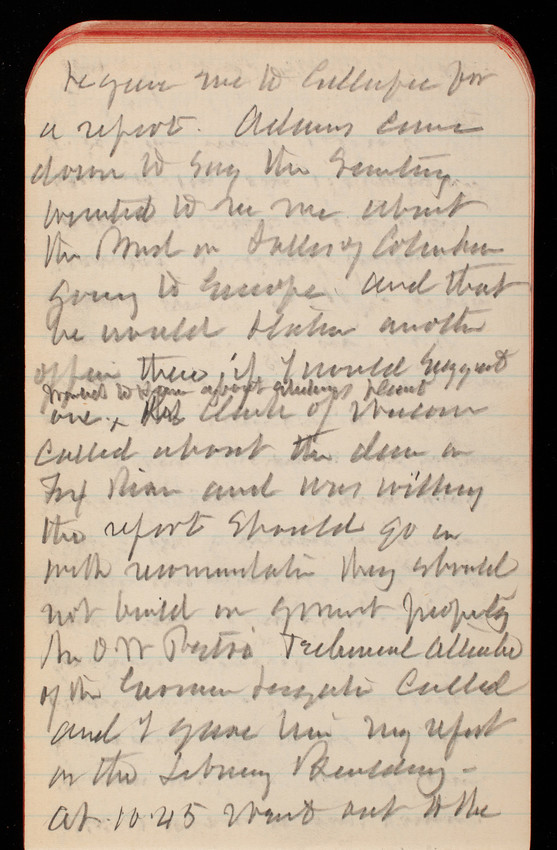 He gave me to Gillespie for
a report. Adams came
down to say the Secretary
wanted to see me about
the Aid on Dalles of Columbia
going to Europe. And that
he would station another
officer there, if I would suggest
wanted to see about
one. Clark of
called about the dam on
Fox River and was willing
the report should go in
with recommendation they should
not build on government property
Mr O. W. Technical Attache
of the German Legation called
and I gave him my report
on the Library Building -
At 10.45 went out to the